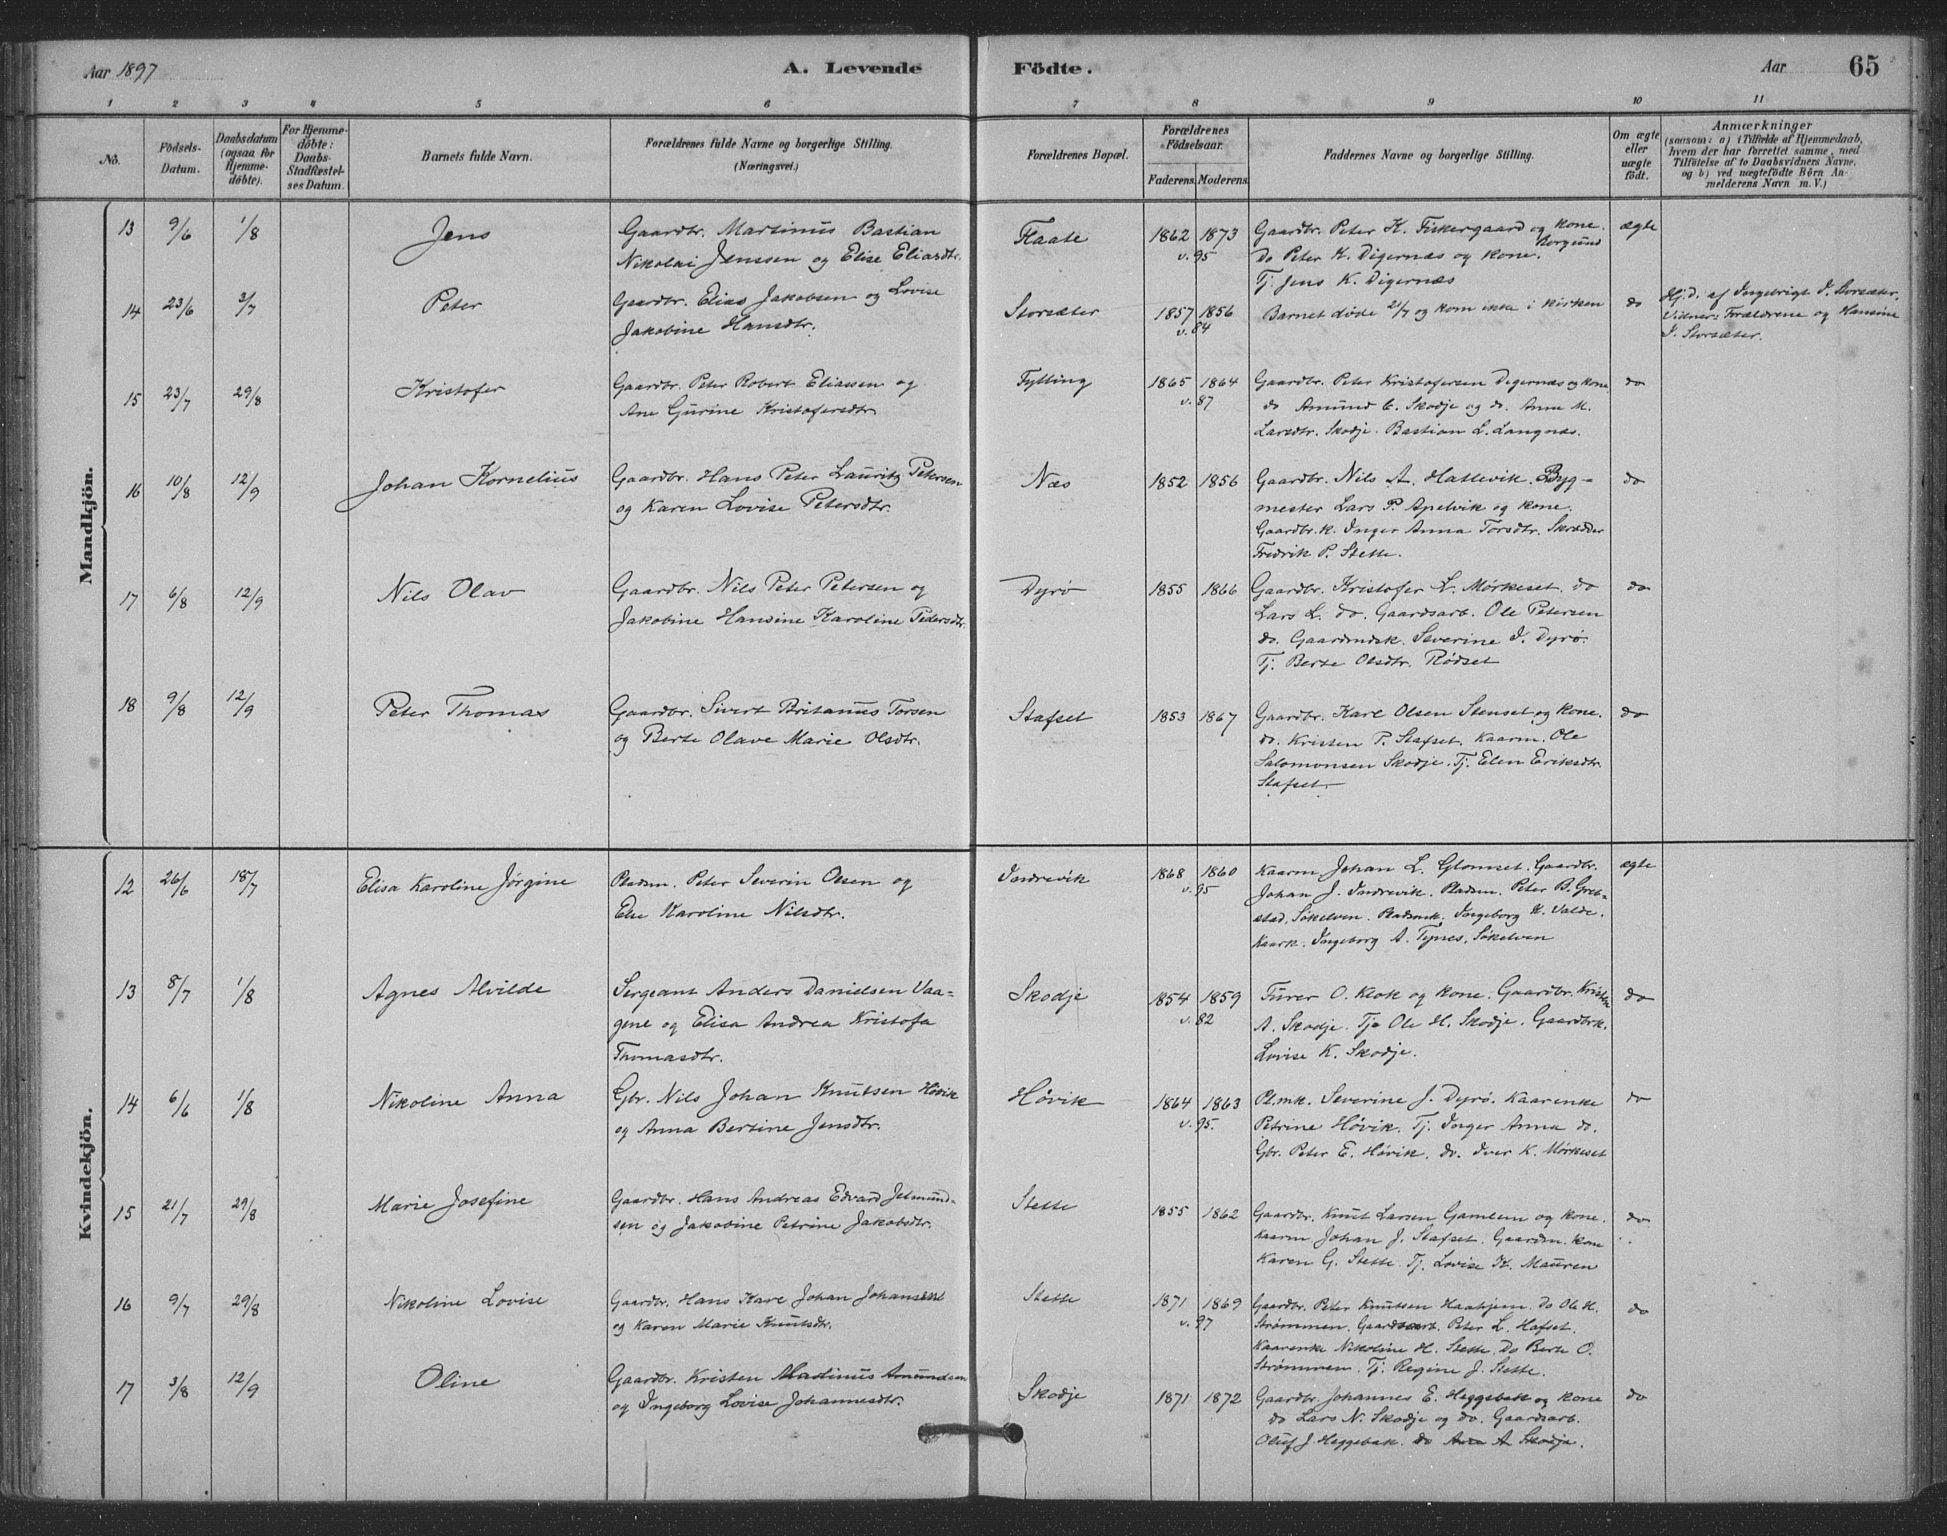 Aar 1897 A. Levende Födte. Aar 65
1 2 3 4 5 6 7 8 9 10 11
No. Födsels-Datum. Daabsdatum (ogsaa for Hjemmedöbte). For Hjemmedöbte: Daabs-Stadfæstelses Datum. Barnets fulde Navn. Forældrenes fulde Navne og borgerlige Stilling. (Næringsvei.) Forældrenes Bopæl. Forældrenes Födselsaar. Faderens. Moderens. Faddernes Navne og borgerlige Stilling. Om ægte eller uægte födt. Anmærkninger (saasom: a) i Tilfælde af Hjemmedaab, hvem der har forrettet samme, med Tilföielse af to Daabsvidners Navne, og b) ved uægtefödte Börn Anmelderens Navn m. V.)
Mandkjön.
13 9/6 1/8 Jens Gaardbr. Martinus Bastian Flaate 1862 1873 Gaardbr. Peter K. Fiskergaard og kone. Borgund ægte
Nikolai Jenssen og Elise Eliasdtr. v. 95 do Peter K. Digernæs og kone.
Tj. Jens K. Digernæs
14 23/6 3/7 Peter Gaardbr. Elias Jakobsen og Lovise Storsæter 1857 1856 Barnet døde 21/7 og kom ikke i kirken do Hj.D. af Ingebrigt I. Storsæter.
Jakobine Hansdtr. v. 84 Vidner: Forældrene og Hansine
I. Storsæter.
15 23/7 29/8 Kristofer Gaardbr. Peter Robert Eliassen og Fylling 1865 1864 Gaardbr. Peter Kristofersen Digernæs og kone do
Ane Gurine Kristofersdtr. v. 87 do Amund C. Skodje og do. Anne M.
Larsdtr. Skodje. Bastian L. Langnæs.
16 10/8 12/9 Johan Kornelius Gaardbr. Hans Peter Lauritz Petersen Næs 1852 1856 Gaardbr. Nils A. Hattevik. Byg-
og Karen Lovise Petersdtr. mester Lars P. Apelvik og kone. do
Gaardbr.k. Inger Anna Torsdtr. Skrædder
Fredrik P. Stette.
17 6/8 12/9 Nils Olav Gaardbr. Nils Peter Petersen og Dyrø 1855 1866 Gaardbr. Kristofer L. Mørkeset. do do
Jakobine Hansine Karoline Pedersdtr. Lars L. do. Gaardsarb. Ole Petersen
do. Gaardmdsk. Severine J. Dyrø.
Tj. Berte Olsdtr. Rødset
18 9/8 12/9 Peter Thomas Gaardbr. Sivert Britanus Torsen Stafset 1853 1867 Gaardbr. Karl Olsen Stenset og kone. do
og Berte Olave Marie Olsdtr. do. Kristen P. Stafset. Kaarm. Ole
Salomonsen Skodje. Tj. Elen Eriksdtr.
Stafset.
Kvindekjön.
12 26/6 18/7 Elisa Karoline Jørgine Pladsm. Peter Severin Olsen og Indrevik 1868 1860 Kaarm Johan L. Glomset. Gaardbr. ægte
Else Karoline Nilsdtr. v. 95 Johan J. Indrevik. Pladsm. Peter B. Greb-
stad, Søkelven. Pladsmk. Ingeborg K. Valde.
Kaark. Ingeborg A. Tynes, Søkelven
13 8/7 1/8 Agnes Alvilde Sergeant Anders Danielsen Vaa- Skodje 1854 1859 Furer O. Klok og kone. Gaardbr. Kristen do
gene og Elisa Andrea Kristofa v. 82 A. Skodje. Tj. Ole H. Skodje. Gaardbrk.
Thomasdtr. Lovise K. Skodje.
14 6/6 1/8 Nikoline Anna Gbr. Nils Johan Knutsen Høvik Høvik 1864 1863 Pl.mk. Severine J. Dyrø. Kaarenke do
og Anna Bersine Jensdtr. v. 95. Petrine Høvik. Tj. Inger Anna do.
Gbr. Peter E. Høvik. do. Iver K. Mørkeset
15 21/7 29/8 Marie Josefine Gaardbr. Hans Andreas Edvard Jetmund- Stette 1855 1862 Gaardbr. Knut Larsen Gamlem og kone. do
sen og Jakobine Petrine Jakobsdtr. Kaarm Johan J. Stafset. Gaardm. kone
Karen G. Stette. Tj. Lovise K. Mauren
16 9/7 29/8 Nikoline Lovise Gaardbr. Hans Karl Johan Johansen Stette 1871 1869 Gaardbr. Peter Knutsen Haahjem. do Ole H. do
og Karen Marie Knutsdtr. v. 97 Strømmen. Gaardsarb. Peter L. Hafset.
Kaarenke Nikoline H. Stette. Do Berte O.
Strømmen. Tj. Regine J. Stette.
17 3/8 12/9 Oline Gaardbr. Kristen Martinus Amundsen Skodje 1871 1872 Gaardbr. Johannes E. Heggebak og kone do
og Ingeborg Lovise Johannesdtr. do Lars N. Skodje og do. Gaardsarb.
Oluf J. Heggebak. do Ane A Skodje.